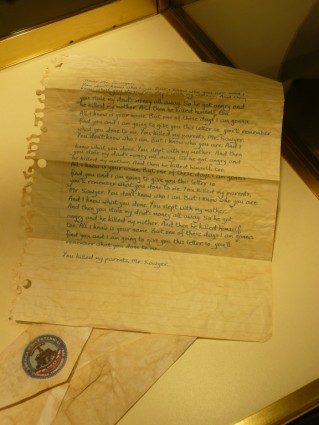 you stole my dad's money all away. So he got angry and
he killed my mother. And then he killed himself, too.
All I know is your name. But one of these days I am gonna
find you and I am going to give you this letter so you'll remember
what you done to me. You killed my parents, Mr. Sawyer.
You don't know who I am. But I know who you are. And I
know what you done. You slept with my mother. And then
you stole my dad's money all away. So he got angry and
he killed my mother. And then he killed himself, too.
All I know is your name. But one of these days I am gonna
find you and I am going to give you this letter so
you'll remember what you done to me. You killed my parents,
Mr. Sawyer. You don't know who I am. But I know who you are.
And I know what you done. You slept with my mother.
And then you stole my dad's money all away. So he got
angry and he killed my mother. And then he killed himself
too. All I know is your name. But one of these days I am gonna
find you and I am going to give you this letter so you'll
remember what you done to me.
You killed my parents, Mr. Sawyer.